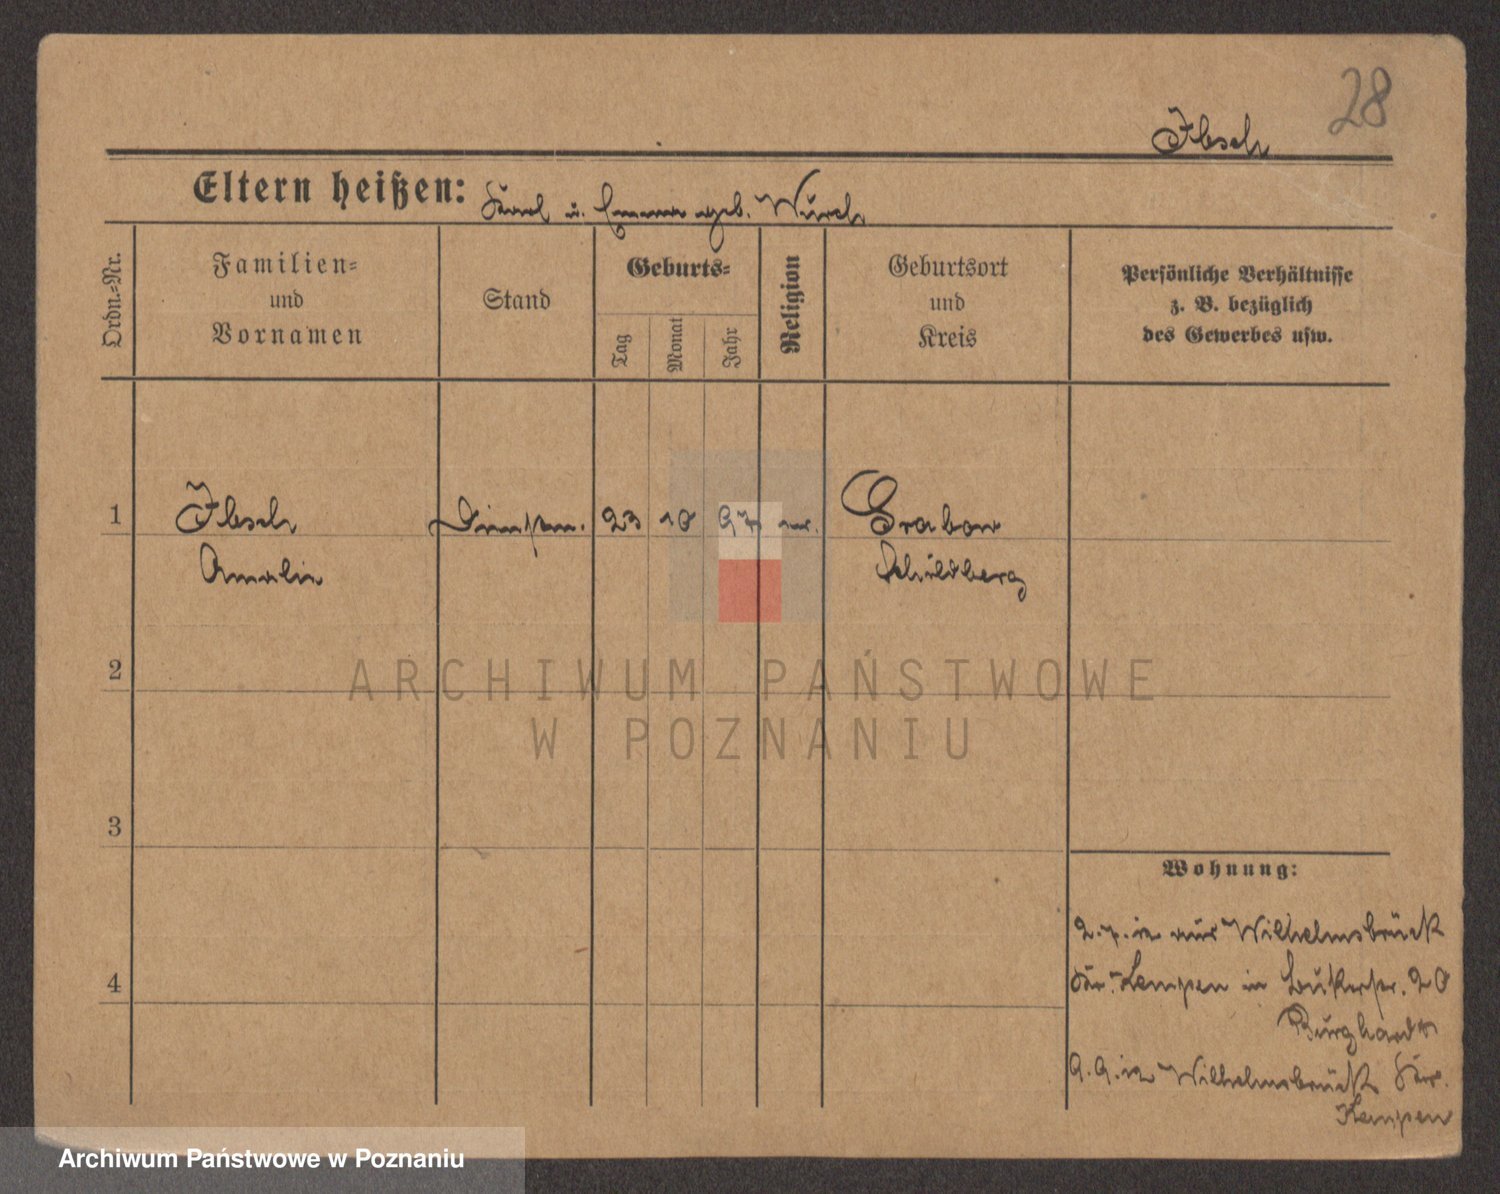 28
Ibsch
Eltern heißen: Karl u. Emma geb. Wurch
Ordn.-Nr.
Familien-
und
Vornamen
Stand
Geburts-
Tag
Monat
Jahr
Religion
Geburtsort
und
Kreis
Persönliche Verhältnisse
z. B. bezüglich
des Gewerbes usw.
1
Ibsch
Amalie
23 10
ev.
Grabow
Schildberg
2
3
4
ARCHIWUM PAŃSTWOWE
W POZNANIU
Wohnung:
aus Wilhelmsbrück
Kr. Kempen in Bukerstr. 20
Burghardt
9.9.12 Wilhelmsbrück Kr.
Kempen
Archiwum Państwowe w Poznaniu